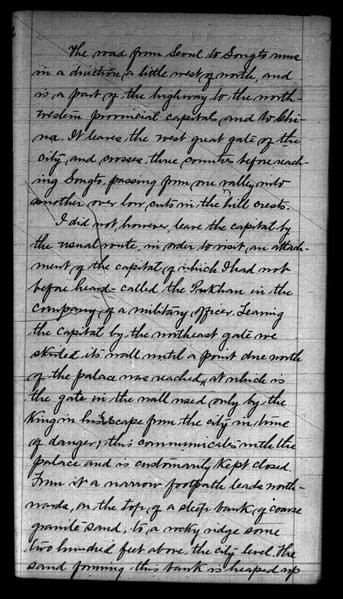 The road from Seoul to Songto runs
in a direction, a little west of north, and
is a part of the highway to the north-
western provincial capital, and to Chi-
na. It leaves the west great gate of the
city, and crosses three counties before reach-
ing Songto, passing from one valley into
another over low cuts in the hill crests.
I did not however leave the capital by
the usual route, in order to visit, an attach-
ment of the capital, of which I had not
before heard - called the Pukhan in the
company, of a military officer. Leaving
the capital by the northeast gate we
skirted its wall until a point due north
of the palace was reached, at which is
the gate in the wall used only by the
King in his escape from the city in time
of danger; this communicates with the
palace and is customarily kept closed.
From it a narrow footpath leads north-
wards, on the top, of a steep bank, of coarse
granite sand, to, a rocky ridge some
two hundred feet above, the city level. The
sand forming this bank is heaped up